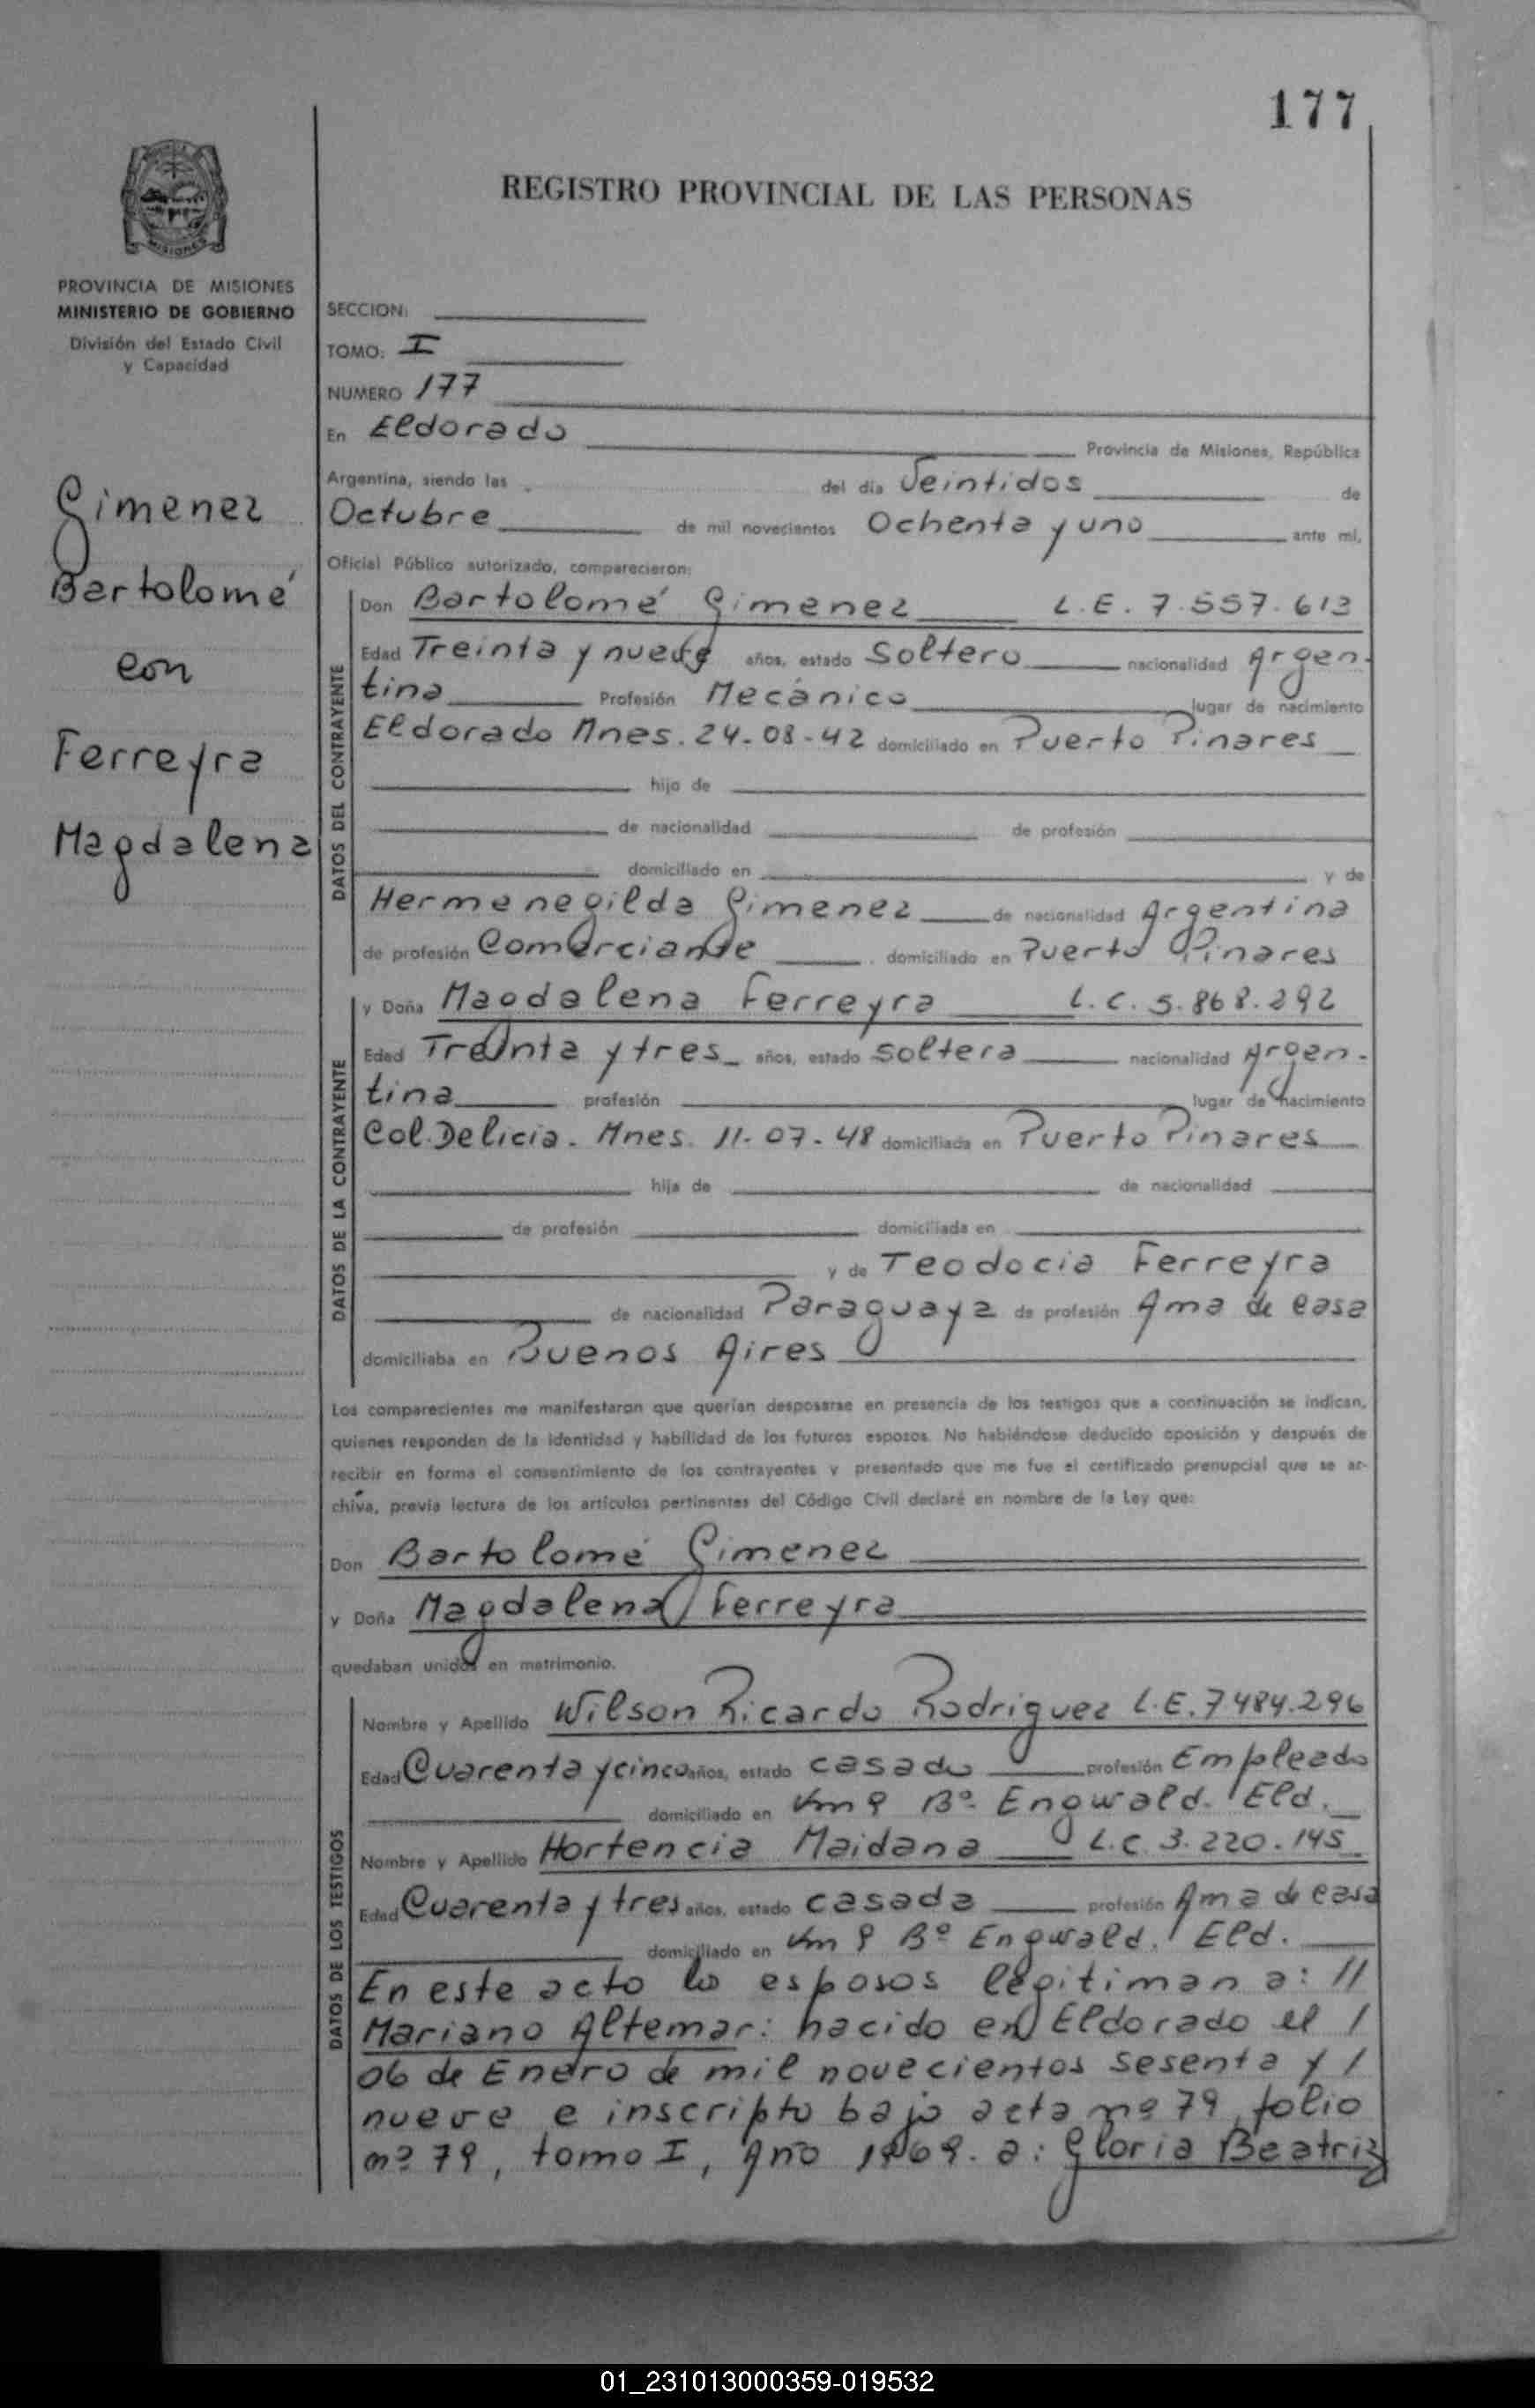 177
REGISTRO PROVINCIAL DE LAS PERSONAS
MISIONES
PROVINCIA DE MISIONES
MINISTERIO DE GOBIERNO
División del Estado Civil
y Capacidad
Gimenez
Bartolomé
con
Ferreyra
Magdalena
SECCION:
TOMO: I
NUMERO 177
En Eldorado Provincia de Misiones, República
Argentina, siendo las del día Veintidos de
Octubre de mil novecientos Ochenta y uno ante mí,
Oficial Público autorizado, comparecieron:
DATOS DEL CONTRAYENTE
Don Bartolomé Gimenez L.E. 7.557.613
Edad Treinta y nueve años, estado Soltero nacionalidad Argen-
tina Profesión Mecánico lugar de nacimiento
Eldorado Mnes. 24-08-42 domiciliado en Puerto Pinares
hijo de
de nacionalidad de profesión
domiciliado en y de
Hermenegilda Gimenez de nacionalidad Argentina
de profesión Comerciante domiciliado en Puerto Pinares
DATOS DE LA CONTRAYENTE
y Doña Magdalena Ferreyra L.C. 5.868.292
Edad Treinta y tres años, estado soltera nacionalidad Argen-
tina profesión lugar de nacimiento
Col. Delicia. Mnes. 11-07-48 domiciliada en Puerto Pinares
hija de de nacionalidad
de profesión domiciliada en
y de Teodocia Ferreyra
de nacionalidad Paraguaya de profesión Ama de casa
domiciliaba en Buenos Aires
Los comparecientes me manifestaron que querían desposarse en presencia de los testigos que a continuación se indican,
quienes responden de la identidad y habilidad de los futuros esposos. No habiéndose deducido oposición y después de
recibir en forma el consentimiento de los contrayentes y presentado que me fue el certificado prenupcial que se ar-
chiva, previa lectura de los artículos pertinentes del Código Civil declaré en nombre de la Ley que:
Don Bartolomé Gimenez
y Doña Magdalena Ferreyra
quedaban unidos en matrimonio.
DATOS DE LOS TESTIGOS
Nombre y Apellido Wilson Ricardo Rodriguez L.E. 7484.296
Edad Cuarenta y cinco años, estado casado profesión Empleado
domiciliado en Km 9 Bº Engwald. Eld.
Nombre y Apellido Hortencia Maidana L.C 3.220.145
Edad Cuarenta y tres años, estado casada profesión Ama de casa
domiciliado en Km 9 Bº Engwald. Eld.
En este acto lo esposos legitiman a: //
Mariano Altemar: nacido en Eldorado el /
06 de Enero de mil novecientos sesenta y /
nueve e inscripto bajo acta nº 79, folio
nº 79, tomo I, Año 1969. a: Gloria Beatriz
01_231013000359-019532